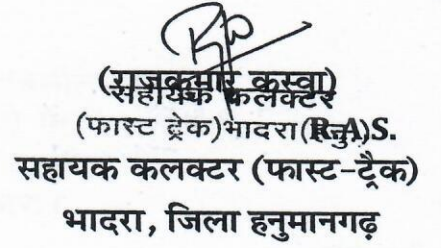 (राजकुमार कस्वा)
सहायक कलक्टर
(फास्ट ट्रेक)भादरा(हनु)
R.A.S.
सहायक कलक्टर (फास्ट-ट्रैक)
भादरा, जिला हनुमानगढ़